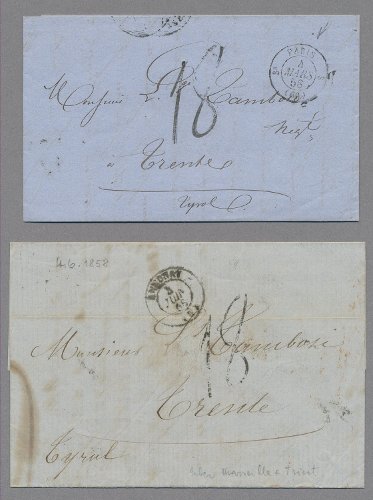 PARIS
4
MARS
56
(60)
18
Monsieur L. Tambosi
Negt
à Trente
Tyrol
4.6.1858
ANNONAY
18
Monsieur L. Tambosi
Trente
Tyrol
Marseille & Triest